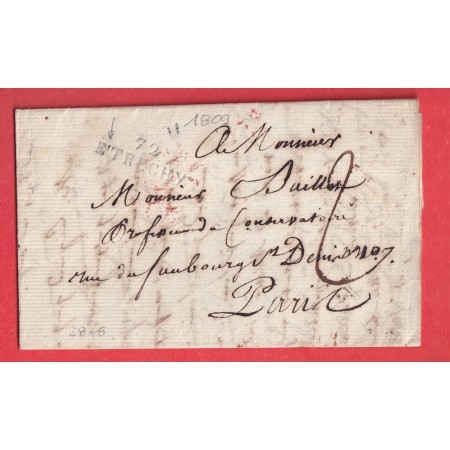 11 1809
72
ETRECHY
A Monsieur
Monsieur Baillot
Professeur du Conservatoire
rue du faubourg St Denis N° 107
Paris
2
28-8